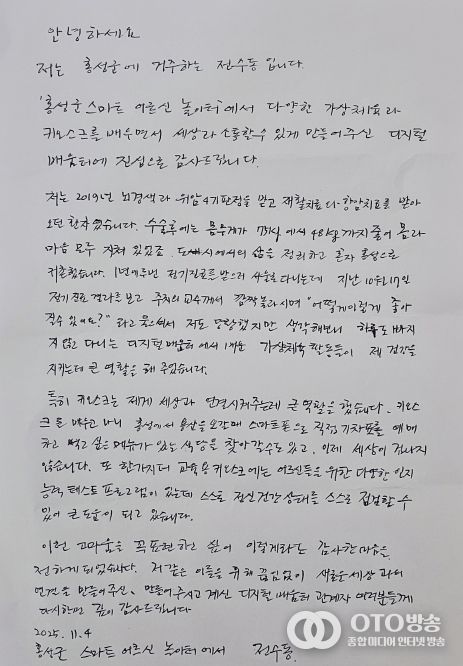 안녕하세요
저는 홍성군에 거주하는 전수동 입니다.
'홍성군 스마트 어르신 놀이터'에서 다양한 가상체육과
키오스크를 배우면서 세상과 소통할수 있게 만들어주신 디지털
배움터에 진심으로 감사드립니다.
저는 2019년 뇌경색과 위암4기판정을 받고 재활치료와 항암치료를 받아
오던 환자였습니다. 수술후에는 몸무게가 78kg에서 48kg까지 줄어 몸과
마음 모두 지쳐 있었죠. 도시에서의 삶을 정리하고 혼자 홍성으로
귀촌했습니다. 1년에두번 정기진료를 받으러 서울로 다니는데 지난 10월17일
정기진료 결과를 보고 주치의 교수께서 깜짝놀라시며 "어떻게이렇게 좋아
질수 있어요?" 라고 물으셔서 저도 당황했지만 생각해보니 하루도 빠지
지 않고 다니는 디지털 배움터에서 배운 가상체육 활동들이 제 건강을
지키는데 큰 역할을 해 주었습니다.
특히 키오스크는 제게 세상과 연결시켜주는데 큰 역할을 했습니다. 키오스
크를 배우고 나니 홍성에서 용산을 오갈때 스마트폰으로 직접 기차표를 예매
하고 먹고 싶은 메뉴가 있는 식당을 찾아갈수도 있고, 이제 세상이 겁나지
않습니다. 또 한가지더 교육용 키오스크에는 어르신들을 위한 다양한 인지
능력 테스트 프로그램이 있는데 스스로 정신건강 상태를 스스로 점검할 수
있어 큰 도움이 되고 있습니다.
이런 고마움을 꼭표현하고 싶어 이렇게라도 감사한마음을
전하게 되었습니다. 저 같은 이들을 위해 끊임없이 새로운세상 과의
연결을 만들어주신, 만들어주시고 계신 디지털 배움터 관계자 여러분들께
다시한번 깊이 감사드립니다
2025. 11. 4
홍성군 스마트 어르신 놀이터에서 전수동.
OTO방송
종합 미디어 인터넷 방송